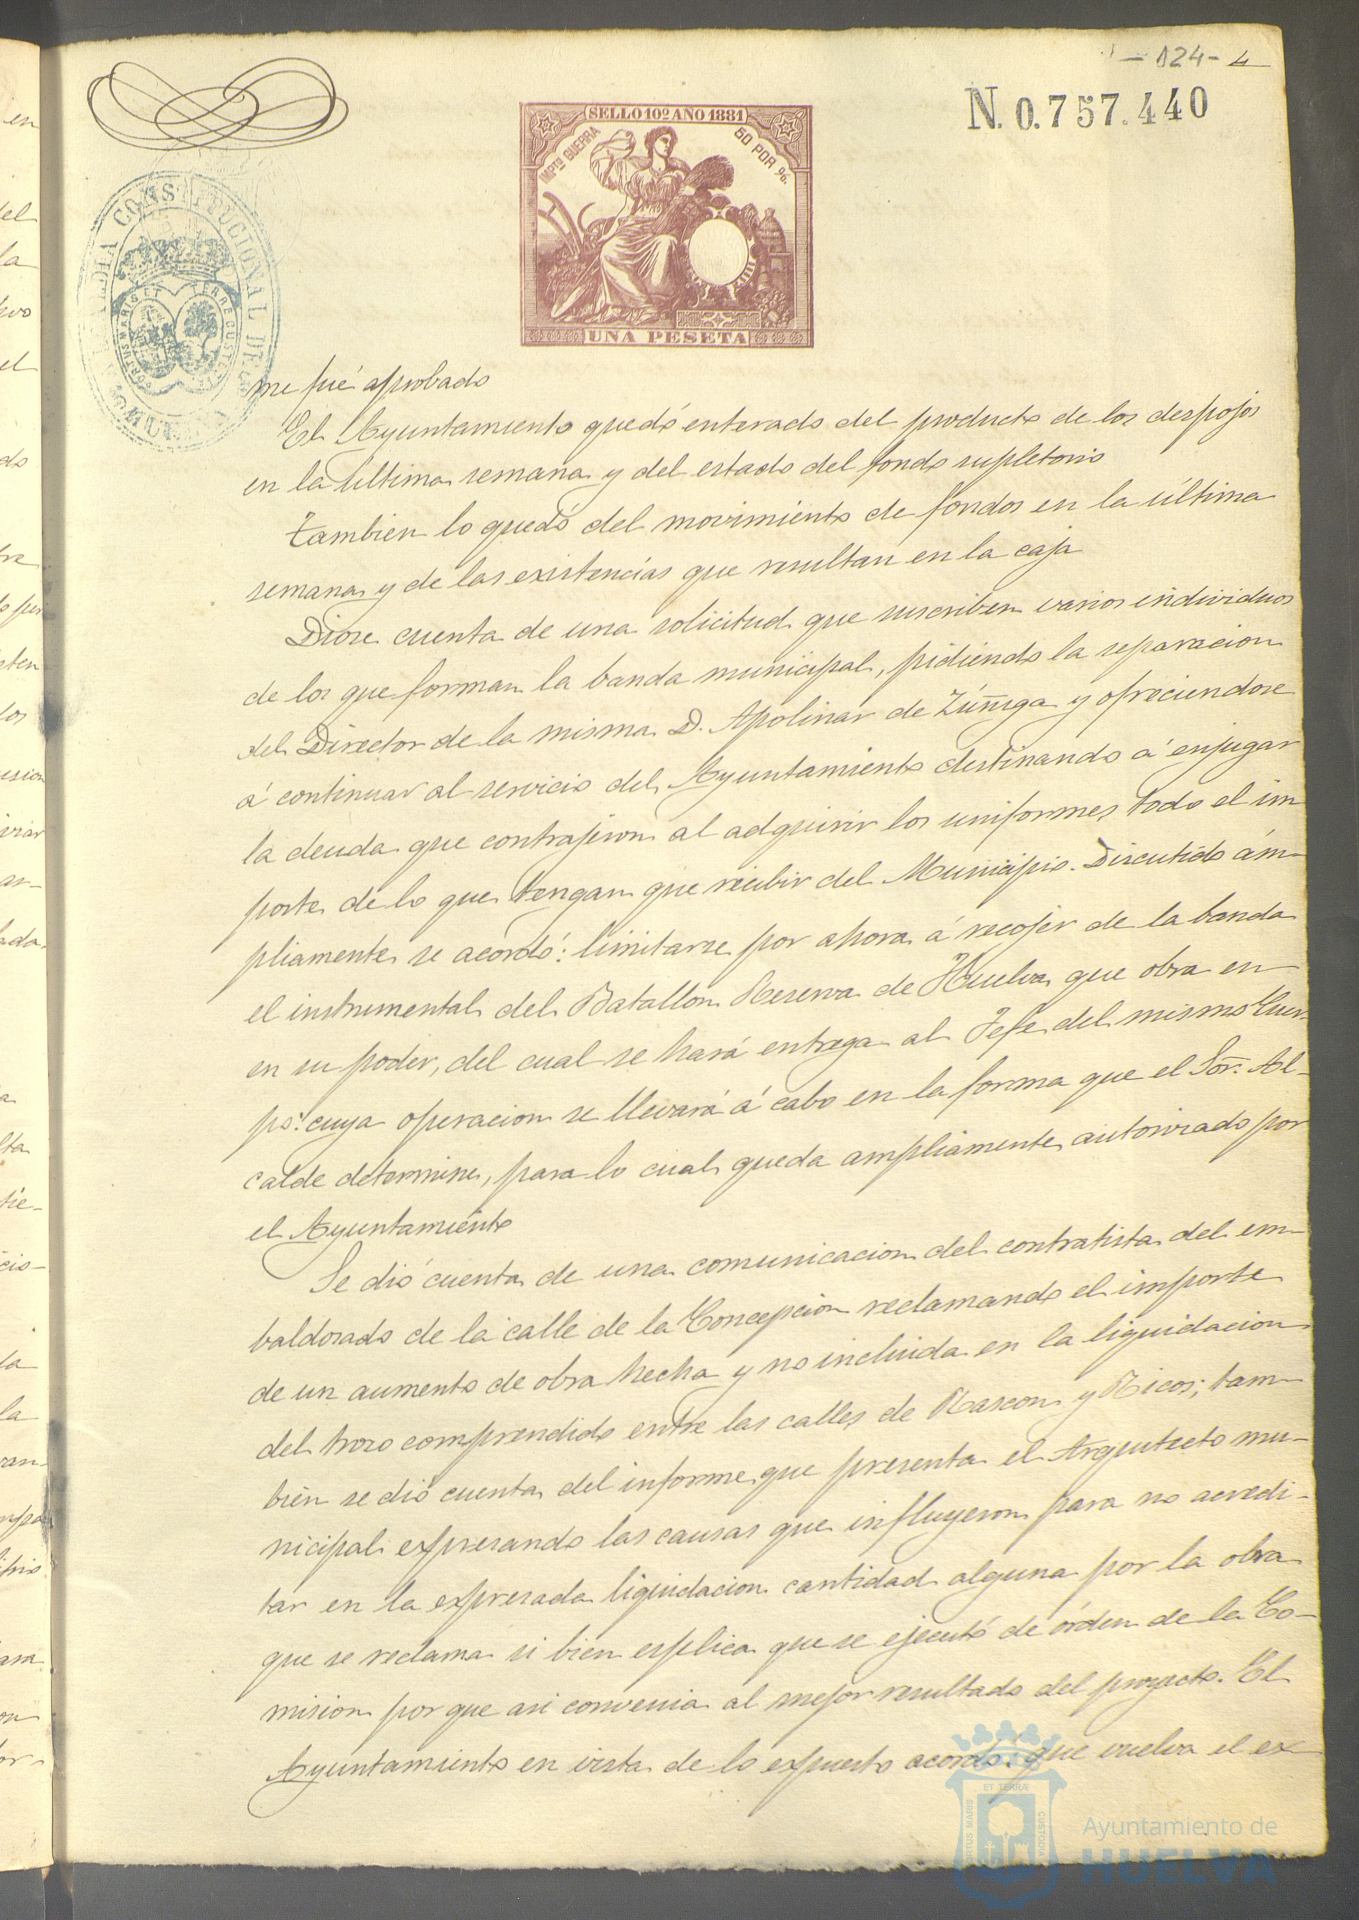 -124- 4
N. 0.757.440
SELLO 10º AÑO 1881
IMPTO GUERRA
50 POR %.
UNA PESETA
ALCALDIA CONSTITUCIONAL DE
PORTUS MARIS ET TERRE CUSTODIA
me fué aprobado
El Ayuntamiento quedó enterado del producto de los despojos
en la última semana y del estado del fondo supletorio
Tambien lo quedó del movimiento de fondos en la última
semana y de las existencias que resultan en la caja
Diose cuenta de una solicitud que suscriben varios individuos
de los que forman la banda municipal, pidiendo la separacion
del Director de la misma D. Apolinar de Zúñiga y ofreciendose
á continuar al servicio del Ayuntamiento destinando á enjugar
la deuda que contrajeron al adquirir los uniformes todo el im-
porte de lo que tengan que recibir del Municipio. Discutido ám-
pliamente se acordó: limitarse por ahora á recojer de la banda
el instrumental del Batallon Reserva de Huelva que obra en
en su poder, del cual se hará entrega al Jefe del mismo Cuer-
po: cuya operacion se llevará á cabo en la forma que el Sor. Al-
calde determine, para lo cual queda ampliamente autorizado por
el Ayuntamiento
Se dió cuenta de una comunicacion del contratista del em-
baldosado de la calle de la Concepcion reclamando el importe
de un aumento de obra hecha y no incluida en la liquidacion
del trozo comprendido entre las calles de Rascon y Ricos; tam-
bien se dió cuenta del informe que presenta el Arquitecto mu-
nicipal expresando las causas que influyeron para no acredi-
tar en la expresada liquidacion cantidad alguna por la obra
que se reclama si bien esplica que se ejecutó de órden de la Co-
mision por que asi convenia al mejor resultado del proyecto. El
Ayuntamiento en vista de lo expuesto acordó: que vuelva el ex-
PORTUS MARIS ET TERRÆ CUSTODIA
Ayuntamiento de
HUELVA